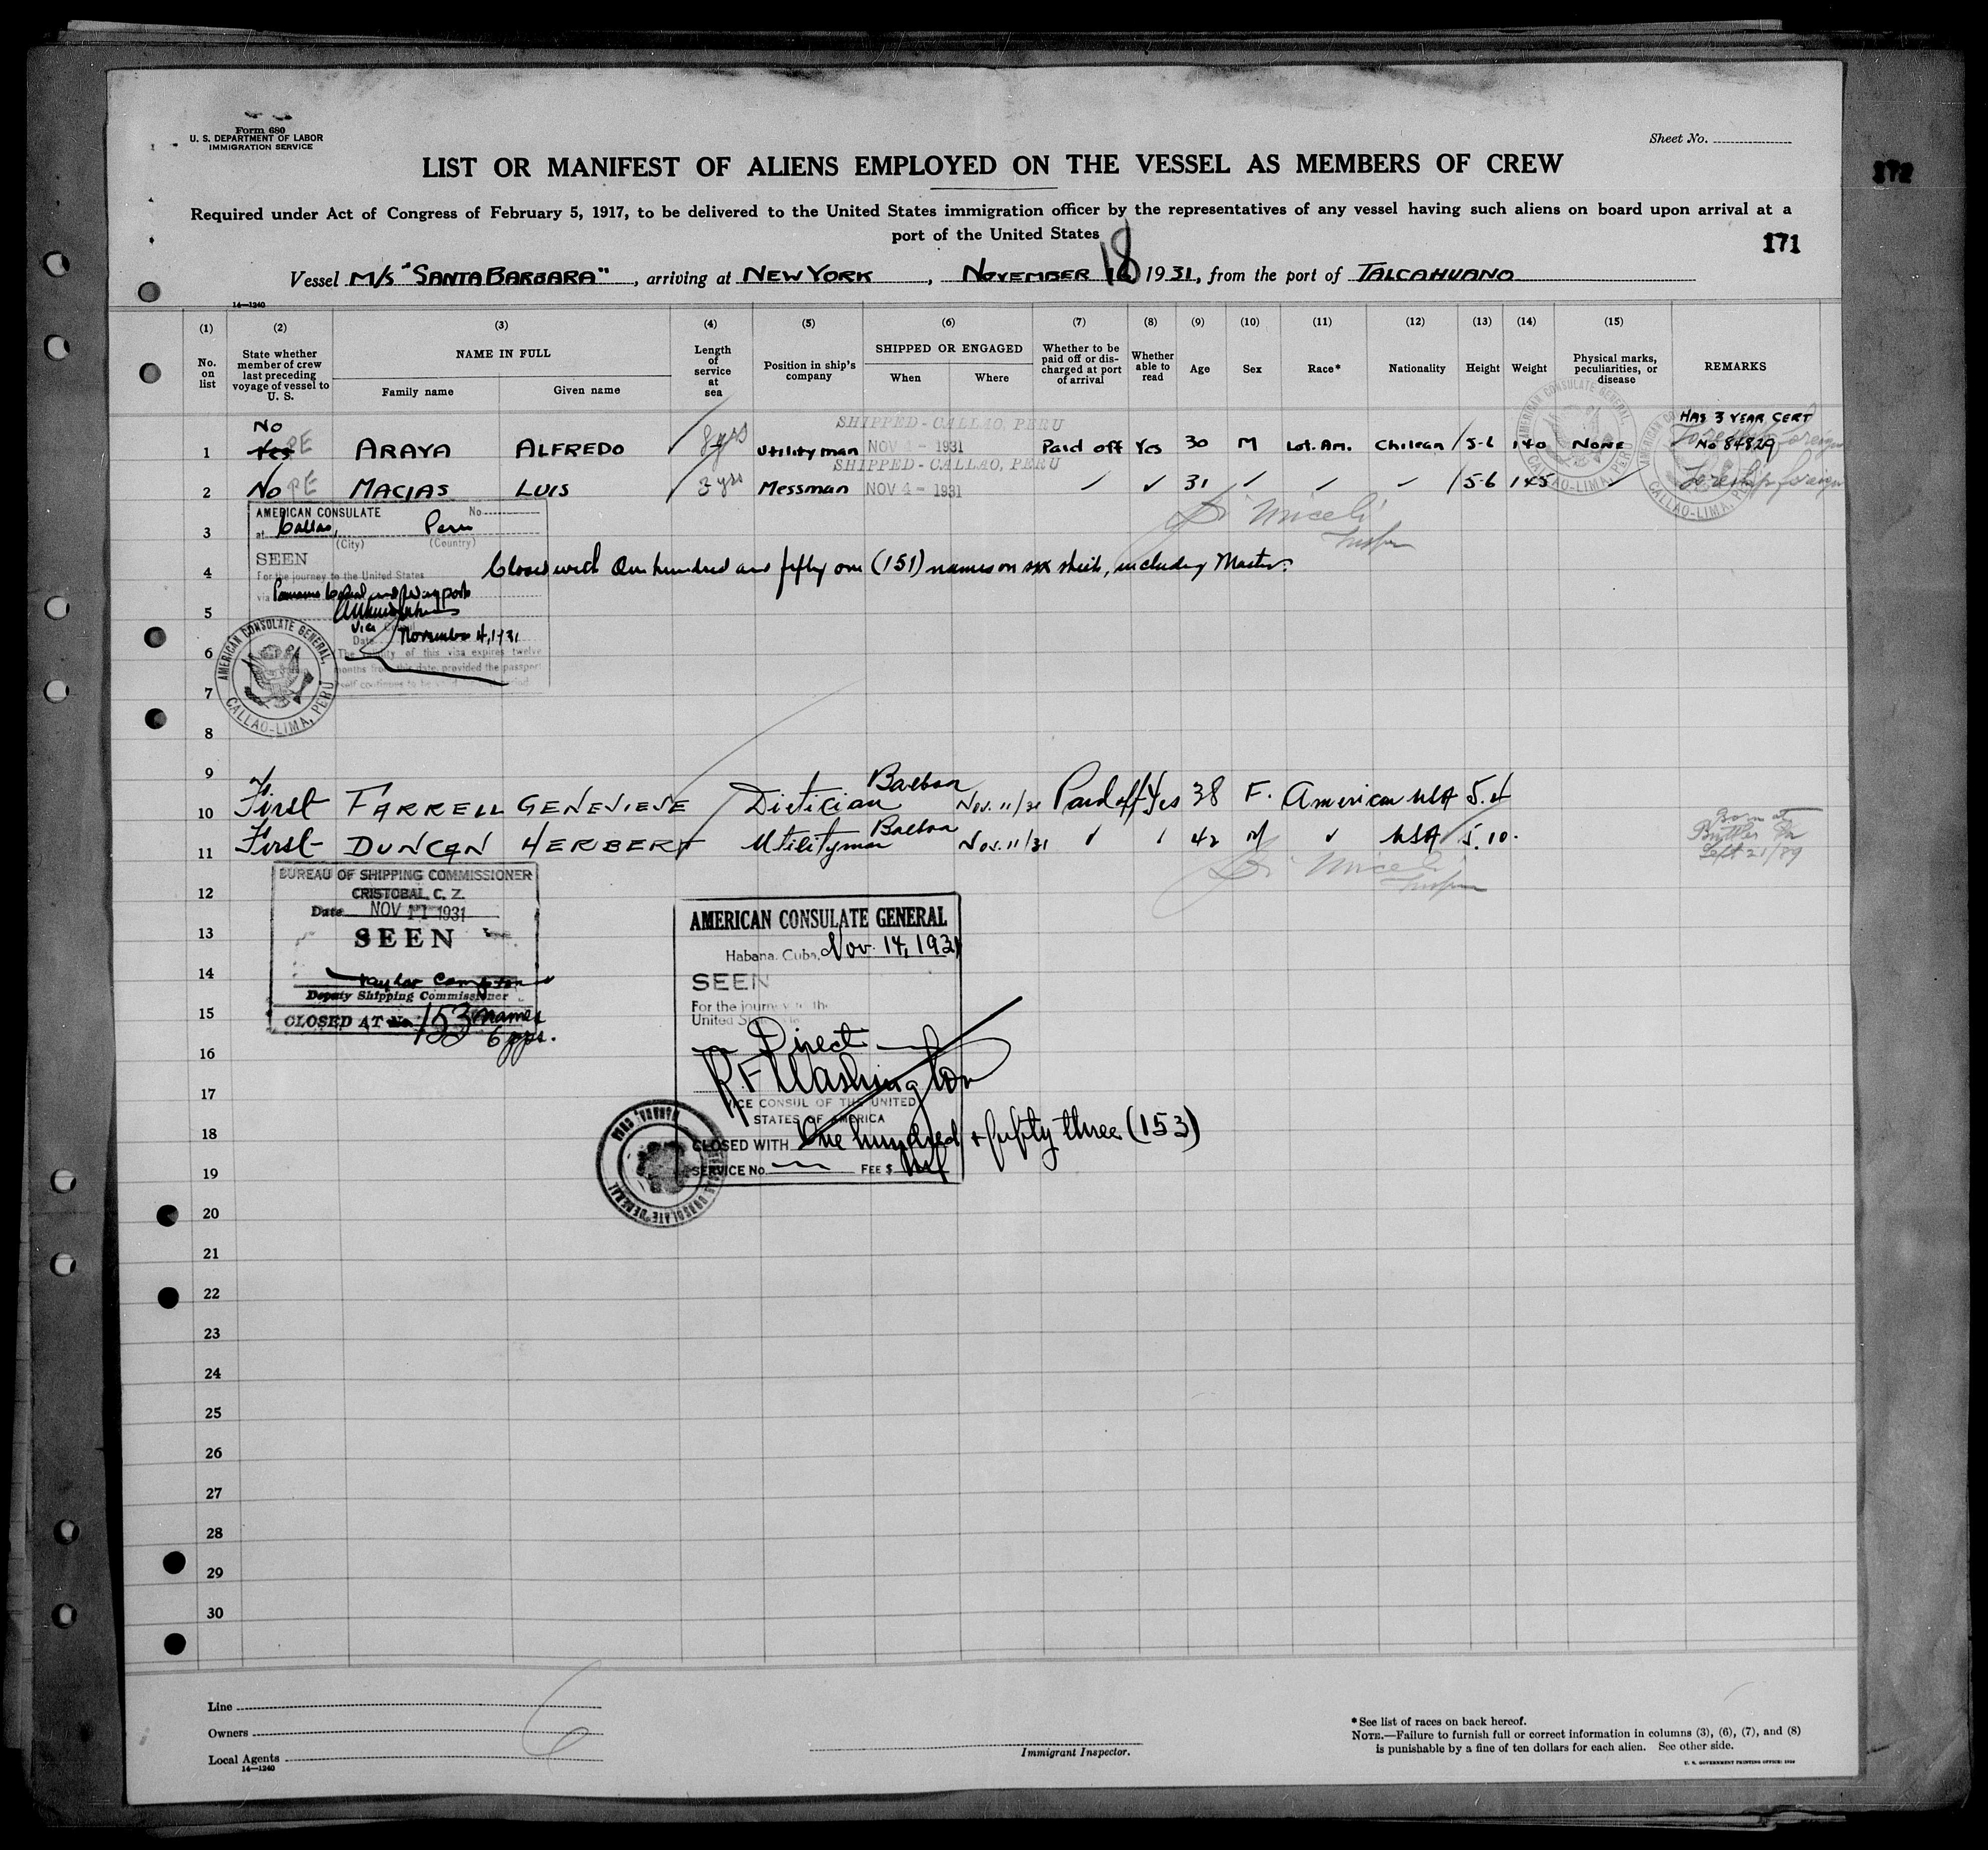 Form 680
U. S. DEPARTMENT OF LABOR
IMMIGRATION SERVICE
Sheet No.
LIST OR MANIFEST OF ALIENS EMPLOYED ON THE VESSEL AS MEMBERS OF CREW
172
Required under Act of Congress of February 5, 1917, to be delivered to the United States immigration officer by the representatives of any vessel having such aliens on board upon arrival at a
port of the United States
171
Vessel M/S "SANTA BARBARA", arriving at NEW YORK, NOVEMBER 18 1931, from the port of TALCAHUANO
14—1240
(1) (2) (3) (4) (5) (6) (7) (8) (9) (10) (11) (12) (13) (14) (15)
No. on list
State whether member of crew last preceding voyage of vessel to U. S.
NAME IN FULL
Family name Given name
Length of service at sea
Position in ship's company
SHIPPED OR ENGAGED
When Where
Whether to be paid off or discharged at port of arrival
Whether able to read
Age Sex Race* Nationality Height Weight
Physical marks, peculiarities, or disease
REMARKS
No SHIPPED - CALLAO, PERU HAS 3 YEAR CERT
1 Yes PE ARAYA ALFREDO 8 yrs Utilityman NOV 4 - 1931 Paid off Yes 30 M Lat. Am. Chilean 5-6 140 NONE No 84829
SHIPPED - CALLAO, PERU
2 No PE MACIAS LUIS 3 yrs Messman NOV 4 - 1931 ✓ ✓ 31 ✓ ✓ ✓ 5-6 145 ✓
AMERICAN CONSULATE No.
3 at Callao, Peru
(City) (Country)
Di Miceli
Inspr
SEEN
4 Closed with One hundred and fifty one (151) names on six sheets, including Master.
For the journey to the United States
via Panama Canal and way ports
5
Vice Consul
Date November 4, 1931
6 The validity of this visa expires twelve
months from this date, provided the passport
7 itself continues to be valid
AMERICAN CONSULATE GENERAL, CALLAO-LIMA, PERU
8
9
10 First FARRELL GENEVIEVE Dietician Balboa Nov. 11/31 Paid off Yes 38 F. American USA 5.4
11 First DUNCAN HERBERT Utilityman Balboa Nov. 11/31 ✓ 42 M ✓ USA 5.10.
Born at
Butler Pa
Sept 21/89
Di Miceli
Inspr
BUREAU OF SHIPPING COMMISSIONER
12 CRISTOBAL, C. Z.
Date NOV 11 1931
13 SEEN
14
Deputy Shipping Commissioner
15 CLOSED AT No. 153 names
6 pgs.
AMERICAN CONSULATE GENERAL
Habana, Cuba, Nov. 14, 1931
SEEN
For the journey to the
United States
Direct
16
R. F. Washington
17 VICE CONSUL OF THE UNITED
STATES OF AMERICA
18 CLOSED WITH One hundred + fifty three (153)
19 SERVICE No. FEE $
20
21
22
23
24
25
26
27
28
29
30
Line
Owners
Local Agents
14—1240
6
Immigrant Inspector.
*See list of races on back hereof.
NOTE.—Failure to furnish full or correct information in columns (3), (6), (7), and (8)
is punishable by a fine of ten dollars for each alien. See other side.